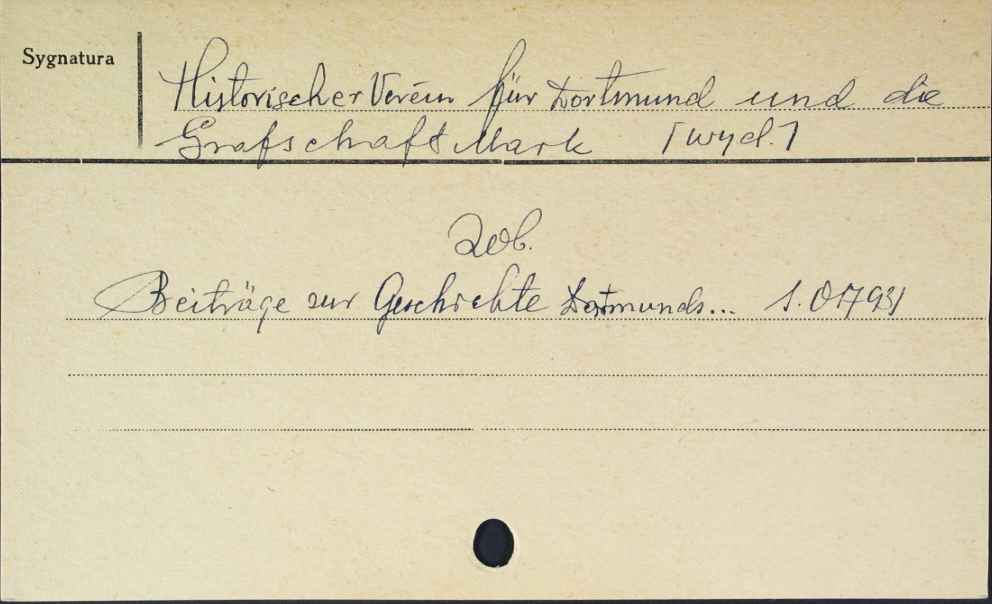 Sygnatura
Historischer Verein für Dortmund und die
Grafschaft Mark [wyd.]
Zob.
Beiträge zur Geschichte Dortmunds...